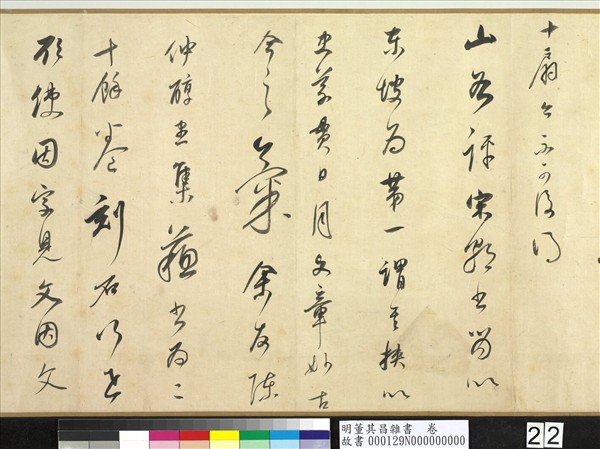 十扇今不可復得
山谷評宋朝書當以
東坡為第一謂其挾以
忠義貫日月文章妙古
今之氣余友陳
仲醇悉集蘇書為二
十餘卷刻石行世
欲使因字見文因文
明董其昌雜書 卷
故書 000129N000000000
22